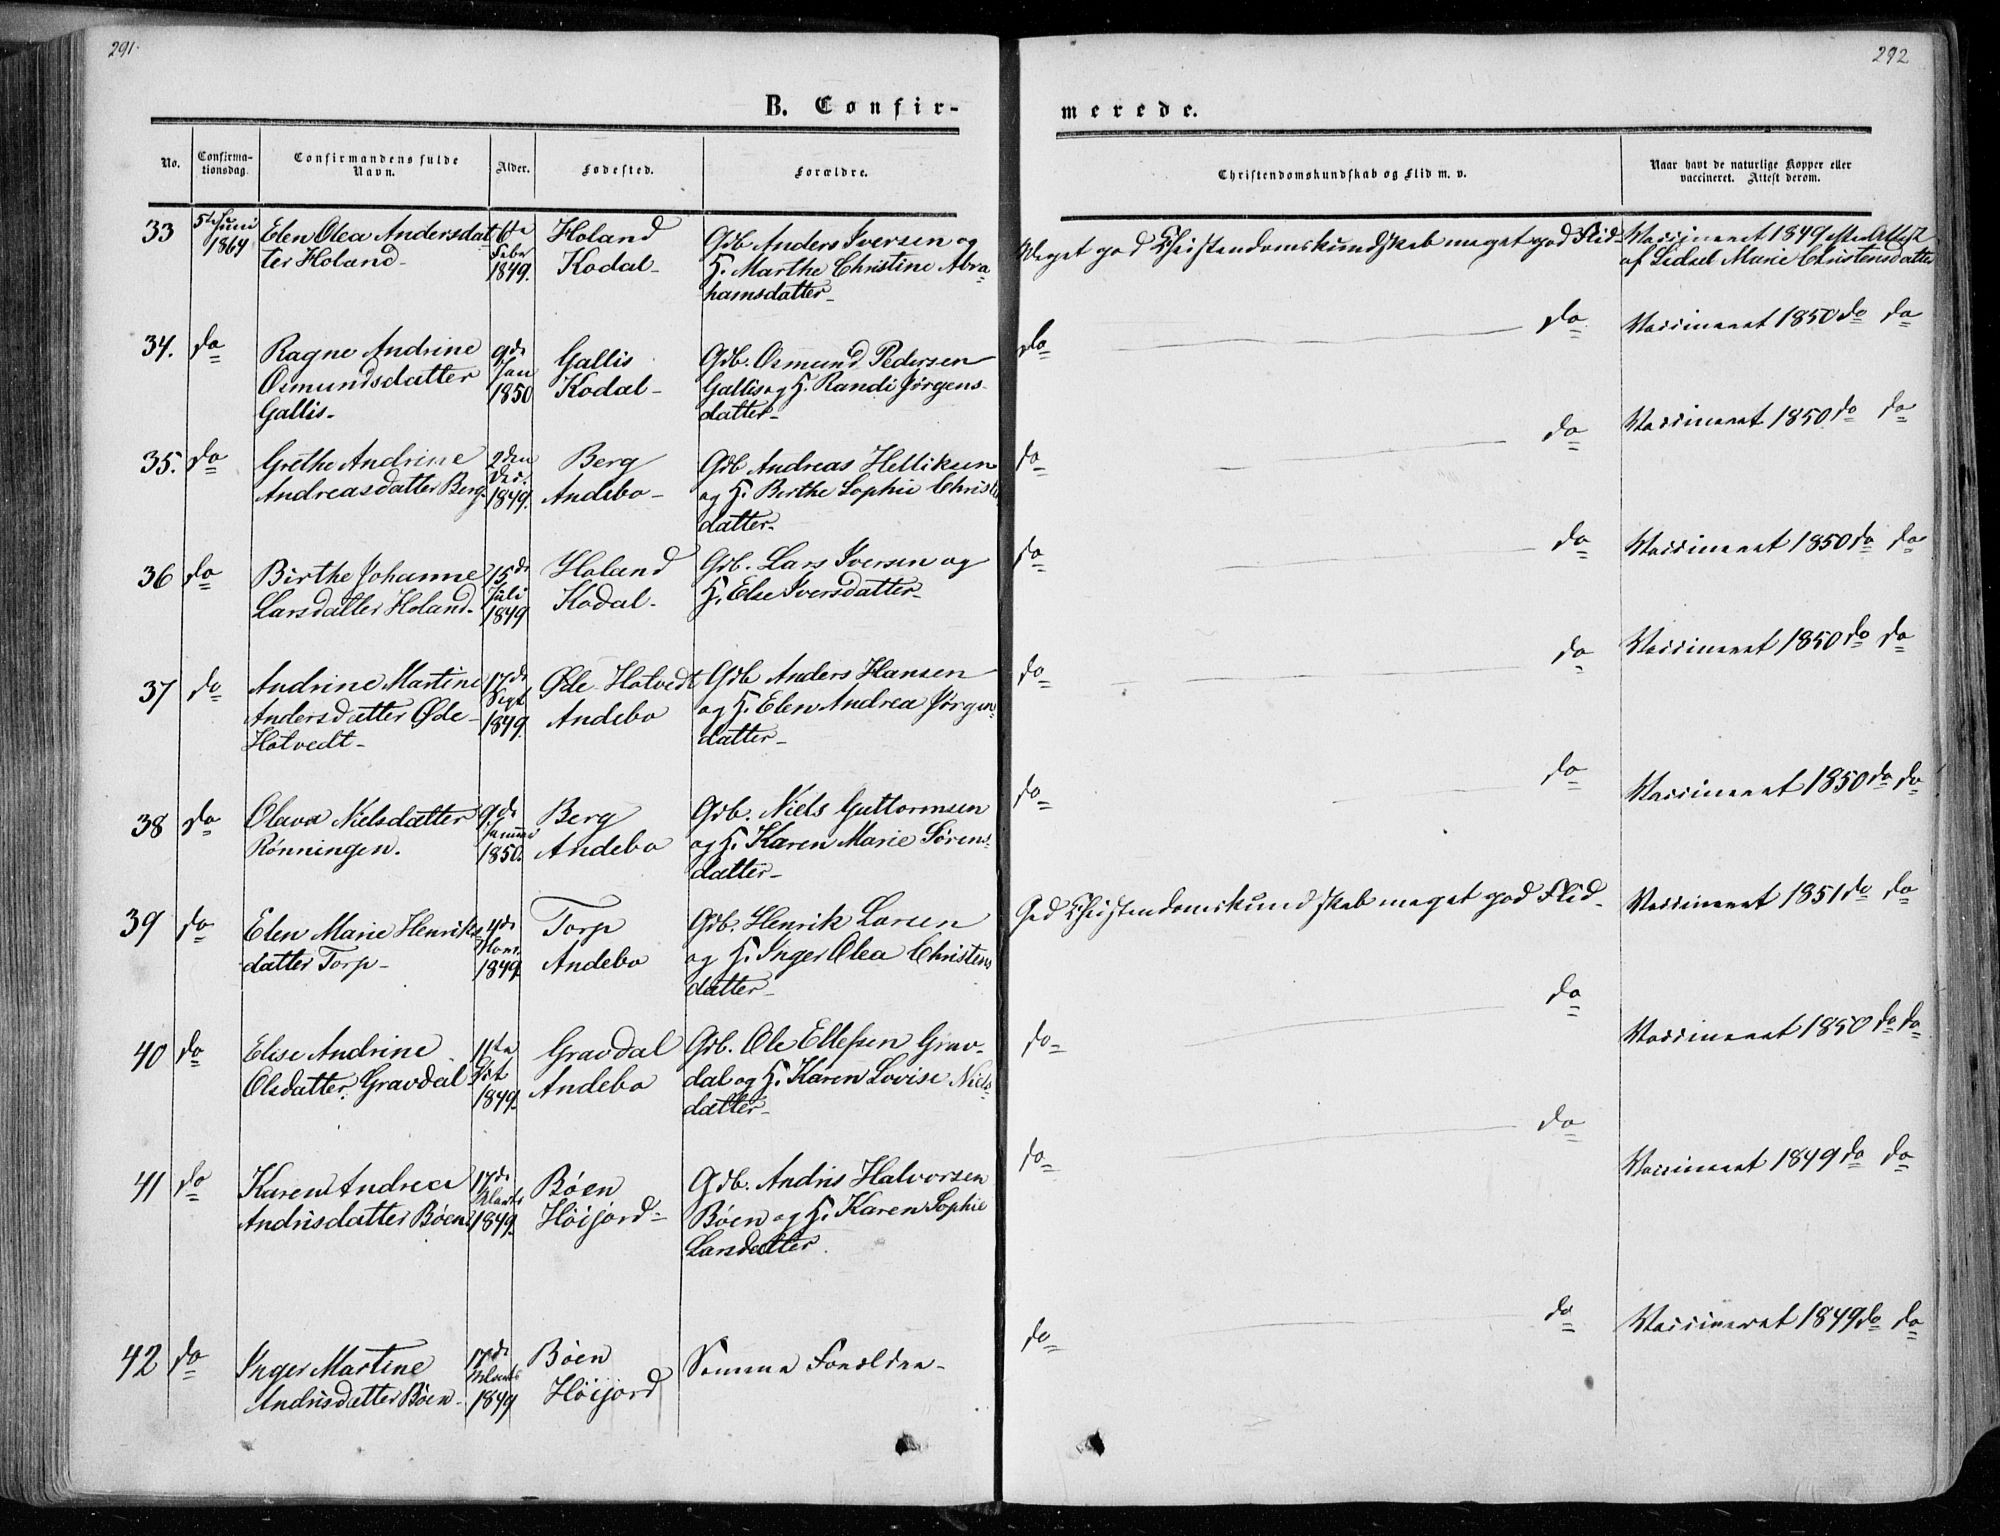 291.
292
B. Confir-
merede.
No.
Confirma-
tionsdag.
Confirmandens fulde
Navn.
Alder.
Fødested.
Forældre.
Christendomskundskab og Flid m. v.
Naar havt de naturlige Kopper eller
vaccineret. Attest derom.
33 5te Juni Elen Olea Andersdat 6te Holand Gdb Anders Iversen og Meget god Christendomskundskab meget god Flid- Vaccineret 1849 efter Attest
1864 ter Holand- Febr Kodal- H. Marthe Christine Abra- af Sidsel Marie Christensdatter
1849. hamsdatter-
34. do Ragne Andrine 9de Gallis Gdb. Osmund Pedersen do do Vaccineret 1850 do do
Osmundsdatter Jan Kodal- Gallis og H. Randi Jørgens-
Gallis- 1850 datter-
35. do Grethe Andrine 2den Berg Gdb Andreas Helliksen do do Vaccineret 1850 do do
Andreasdatter Berg- Dec. Andebo- og H. Berthe Sophie
1849. datter-
36 do Birthe Johanne 15de Holand Gdb. Lars Iversen og do do Vaccineret 1850 do do
Larsdatter Holand- Juli Kodal- H. Else Iversdatter-
1849
37 do Andrine Martine 17de Øde Hotvedt Gdb Anders Hansen do do Vaccineret 1850 do do
Andersdatter Øde- Sept Andebo og H. Elen Andrea Jørgen
Hotvedt- 1849. datter-
38 do Olava Nielsdatter 9de Berg Gdb. Niels Guttormsen do do Vaccineret 1850 do do
Rønningen. Andebo og H. Karen Marie Sørens-
1850. datter-
39 do Elen Marie Henriks 4de Torp Gdb. Henrik Larsen God Christendomskundskab meget god Flid- Vaccineret 1851 do do
datter Torp- Andebo og H. Inger Olea Christens
1849. datter-
40 do Elise Andrine 11te Gravdal Gdb. Ole Ellefsen Grav- do do Vaccineret 1850 do do
Olsdatter Gravdal Andebo dal og H. Karen Lovise Niels
1849. datter-
41 do Karen Andrea 17de Bøen Gdb. Andris Halvorsen do do Vaccineret 1849 do do
Andrisdatter Bøen 1849. Høijord- Bøen og H. Karen Sophie
Larsdatter.
42 do Inger Martine 17de Bøen Samme Forældre- do do Vaccineret 1849 do do
Andrisdatter Bøen- 1849 Høijord